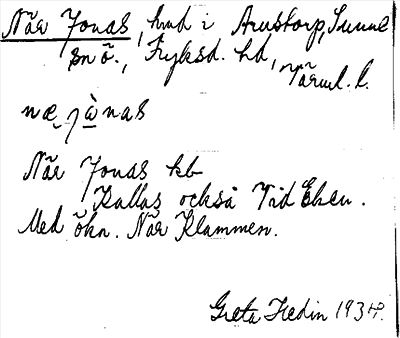 När Jonas, hmd i Arnstorp, Sunne
sn ö., Fryksd. hd,
Värml. l.
næ jò nas
När Jonas kb
Kallas också Vid Eken.
Med ökn. När Klammen.
Greta Hedin 1934.